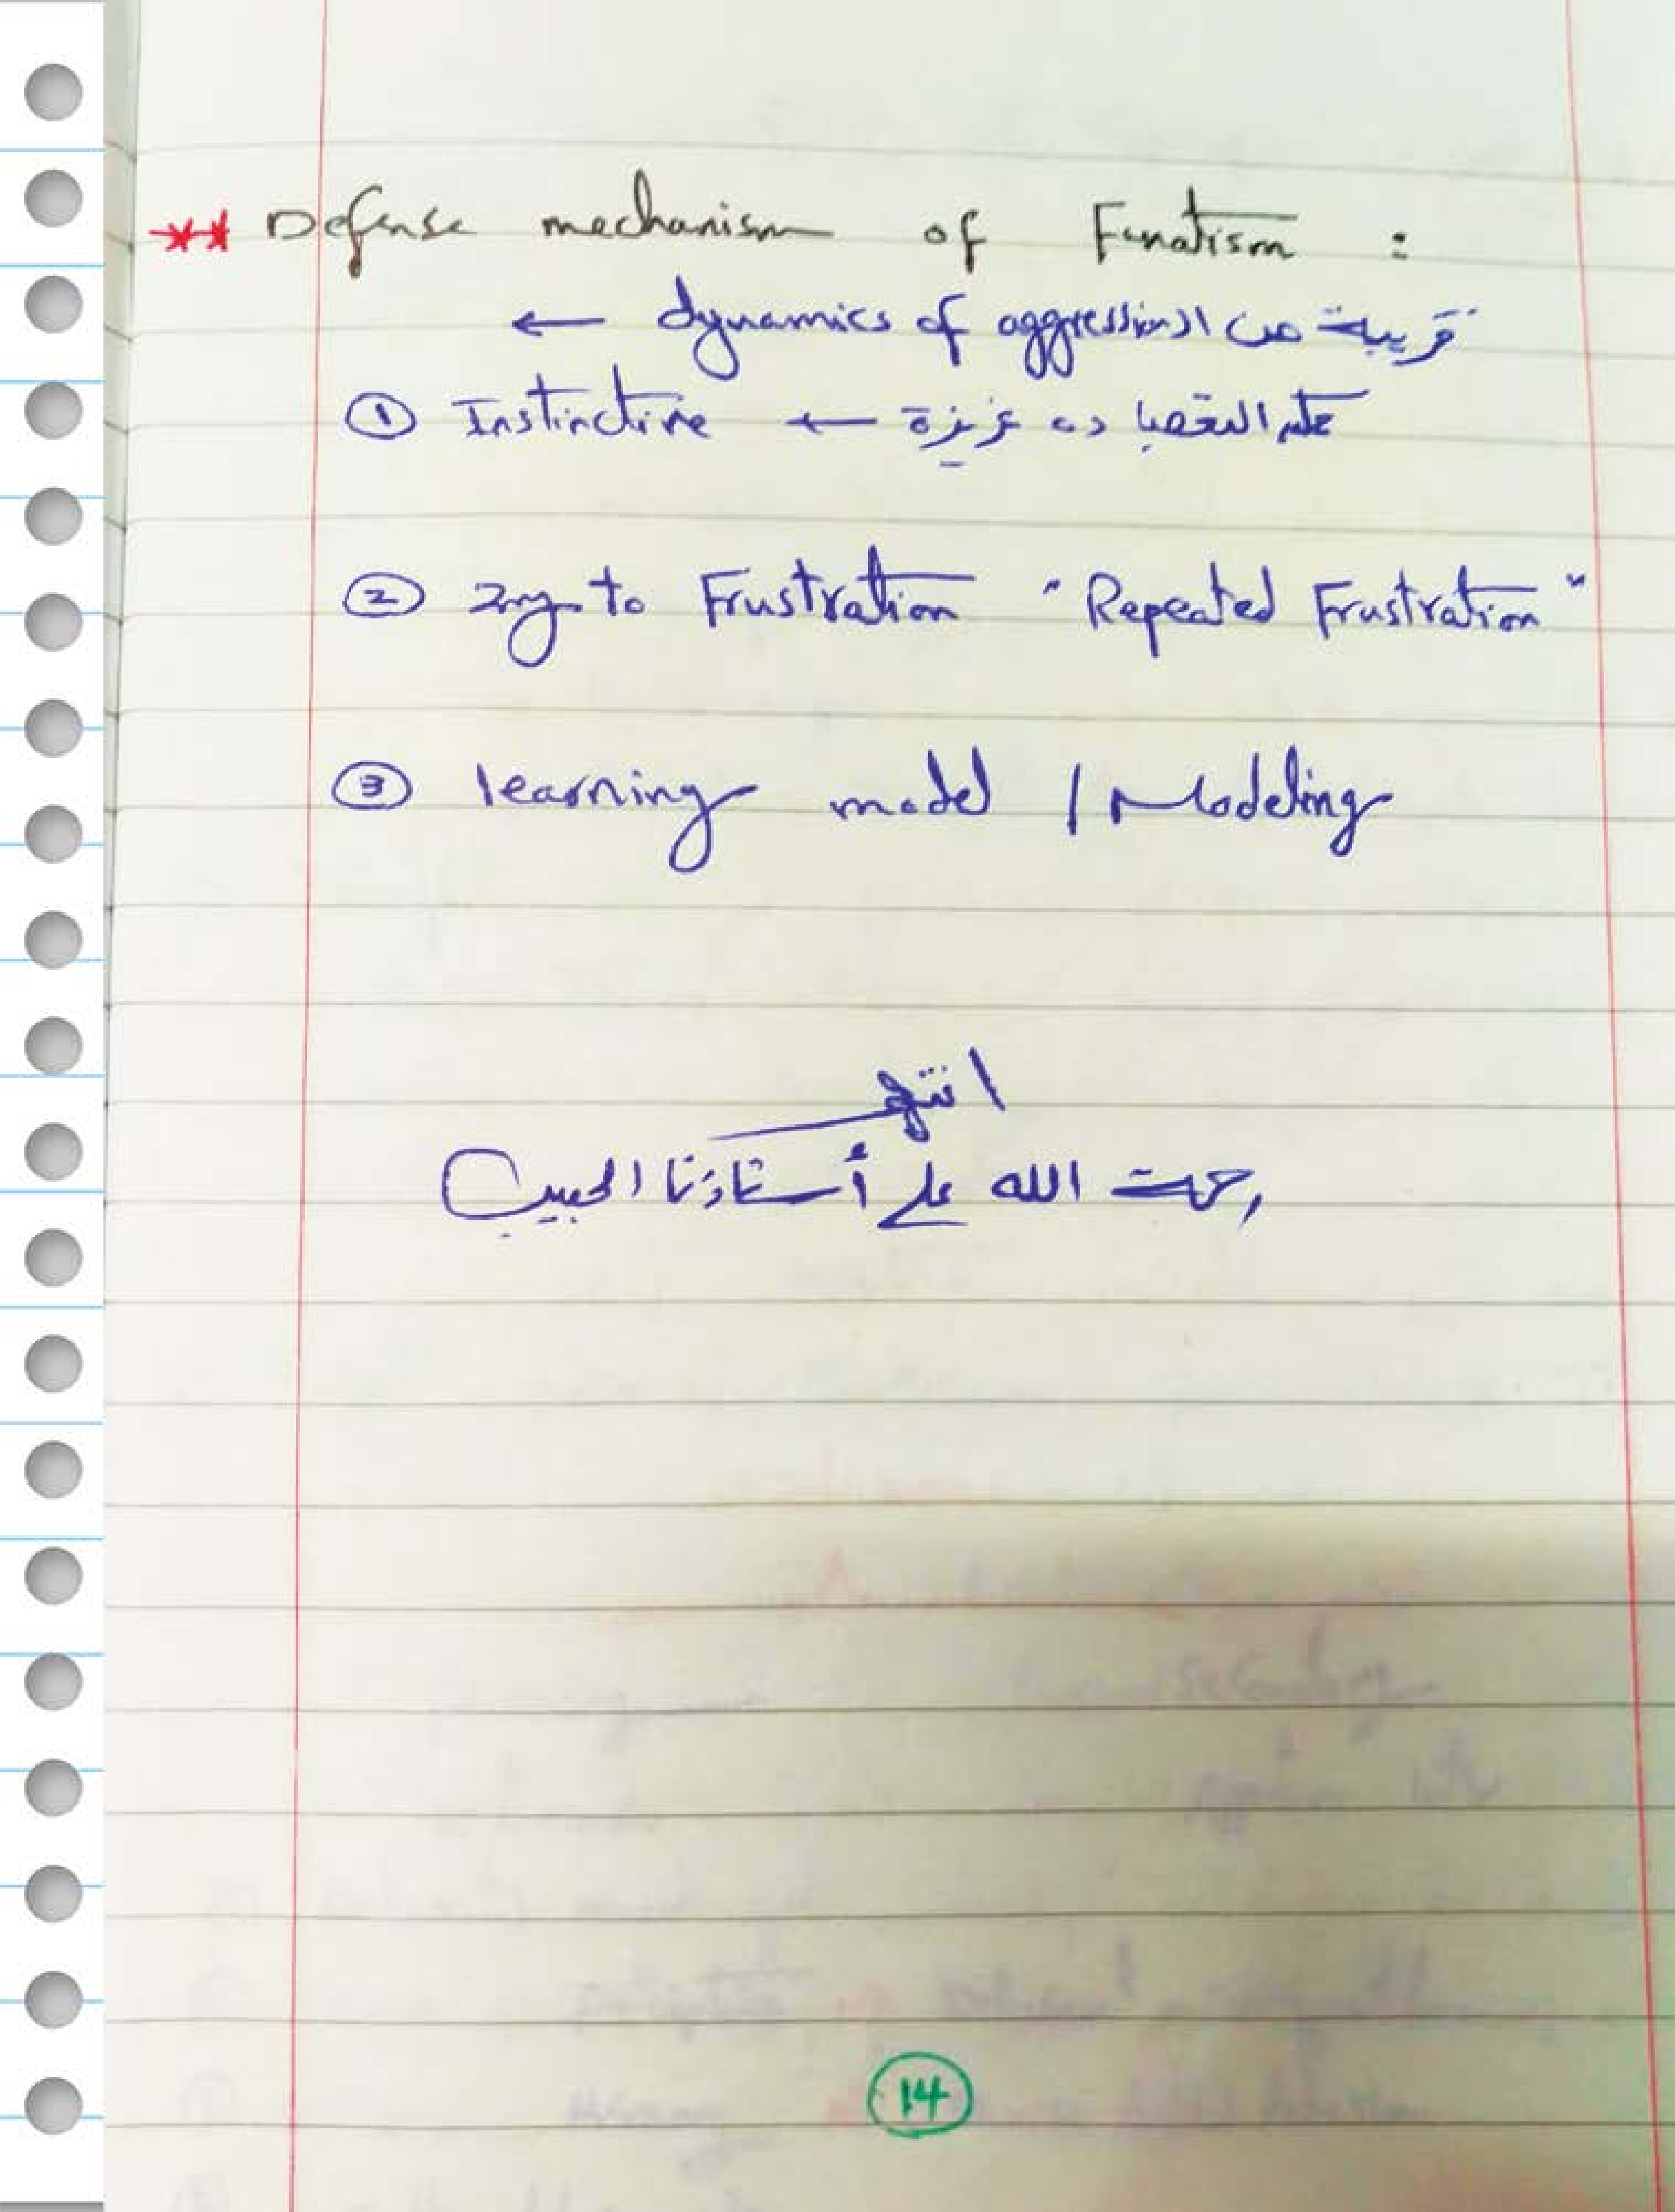 ** Defense mechanism of Fanatism :
قريبة من ال dynamics of aggression ←
① Instinctive ← غريزة ده
② 2ry to Frustration "Repeated Frustration"
③ learning model / Modeling
انتهى
رحمت الله على أستاذنا الحبيب
14